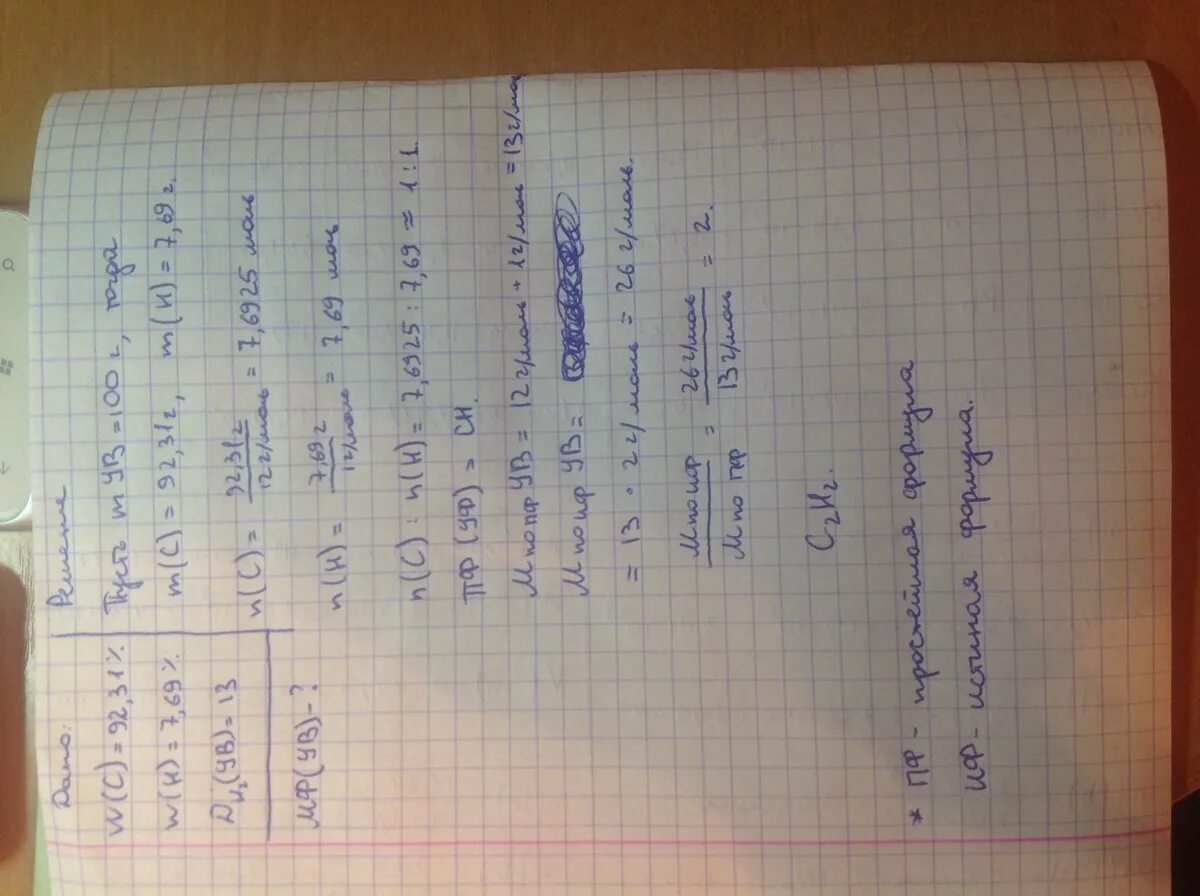 Дано:
W(C)=92,31%
W(H)=7,69%
D_H₂(УВ)=13
МФ(УВ)-?
Решение
Пусть m УВ=100г, тогда
m(C)=92,31г, m(H)=7,69г.
n(C)= 92,31г / 12г/моль = 7,6925 моль
n(H)= 7,69г / 1г/моль = 7,69 моль
n(C):n(H)=7,6925:7,69≈1:1.
ПФ(УФ)= CH.
М по пф УВ=12г/моль+1г/моль=13г/мол
М по иф УВ=
=13·2г/моль=26г/моль.
М по иф / М по пф = 26г/моль / 13г/моль = 2.
C₂H₂.
* ПФ- простейшая формула
ИФ- истиная формула.